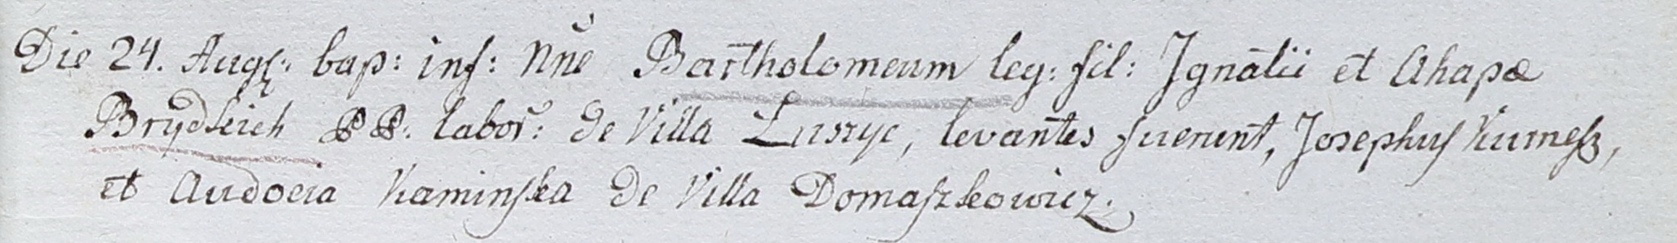 Die 24. Augs: bap: inf: Nñe Bartholomeum leg: fil: Ignatii et Ahapæ
Brydkich PP. labor: de Villa Luszyc, levantes fuerunt, Josephus Kurnesz,
et Audocia Kaminska de Villa Domaszkowicz.